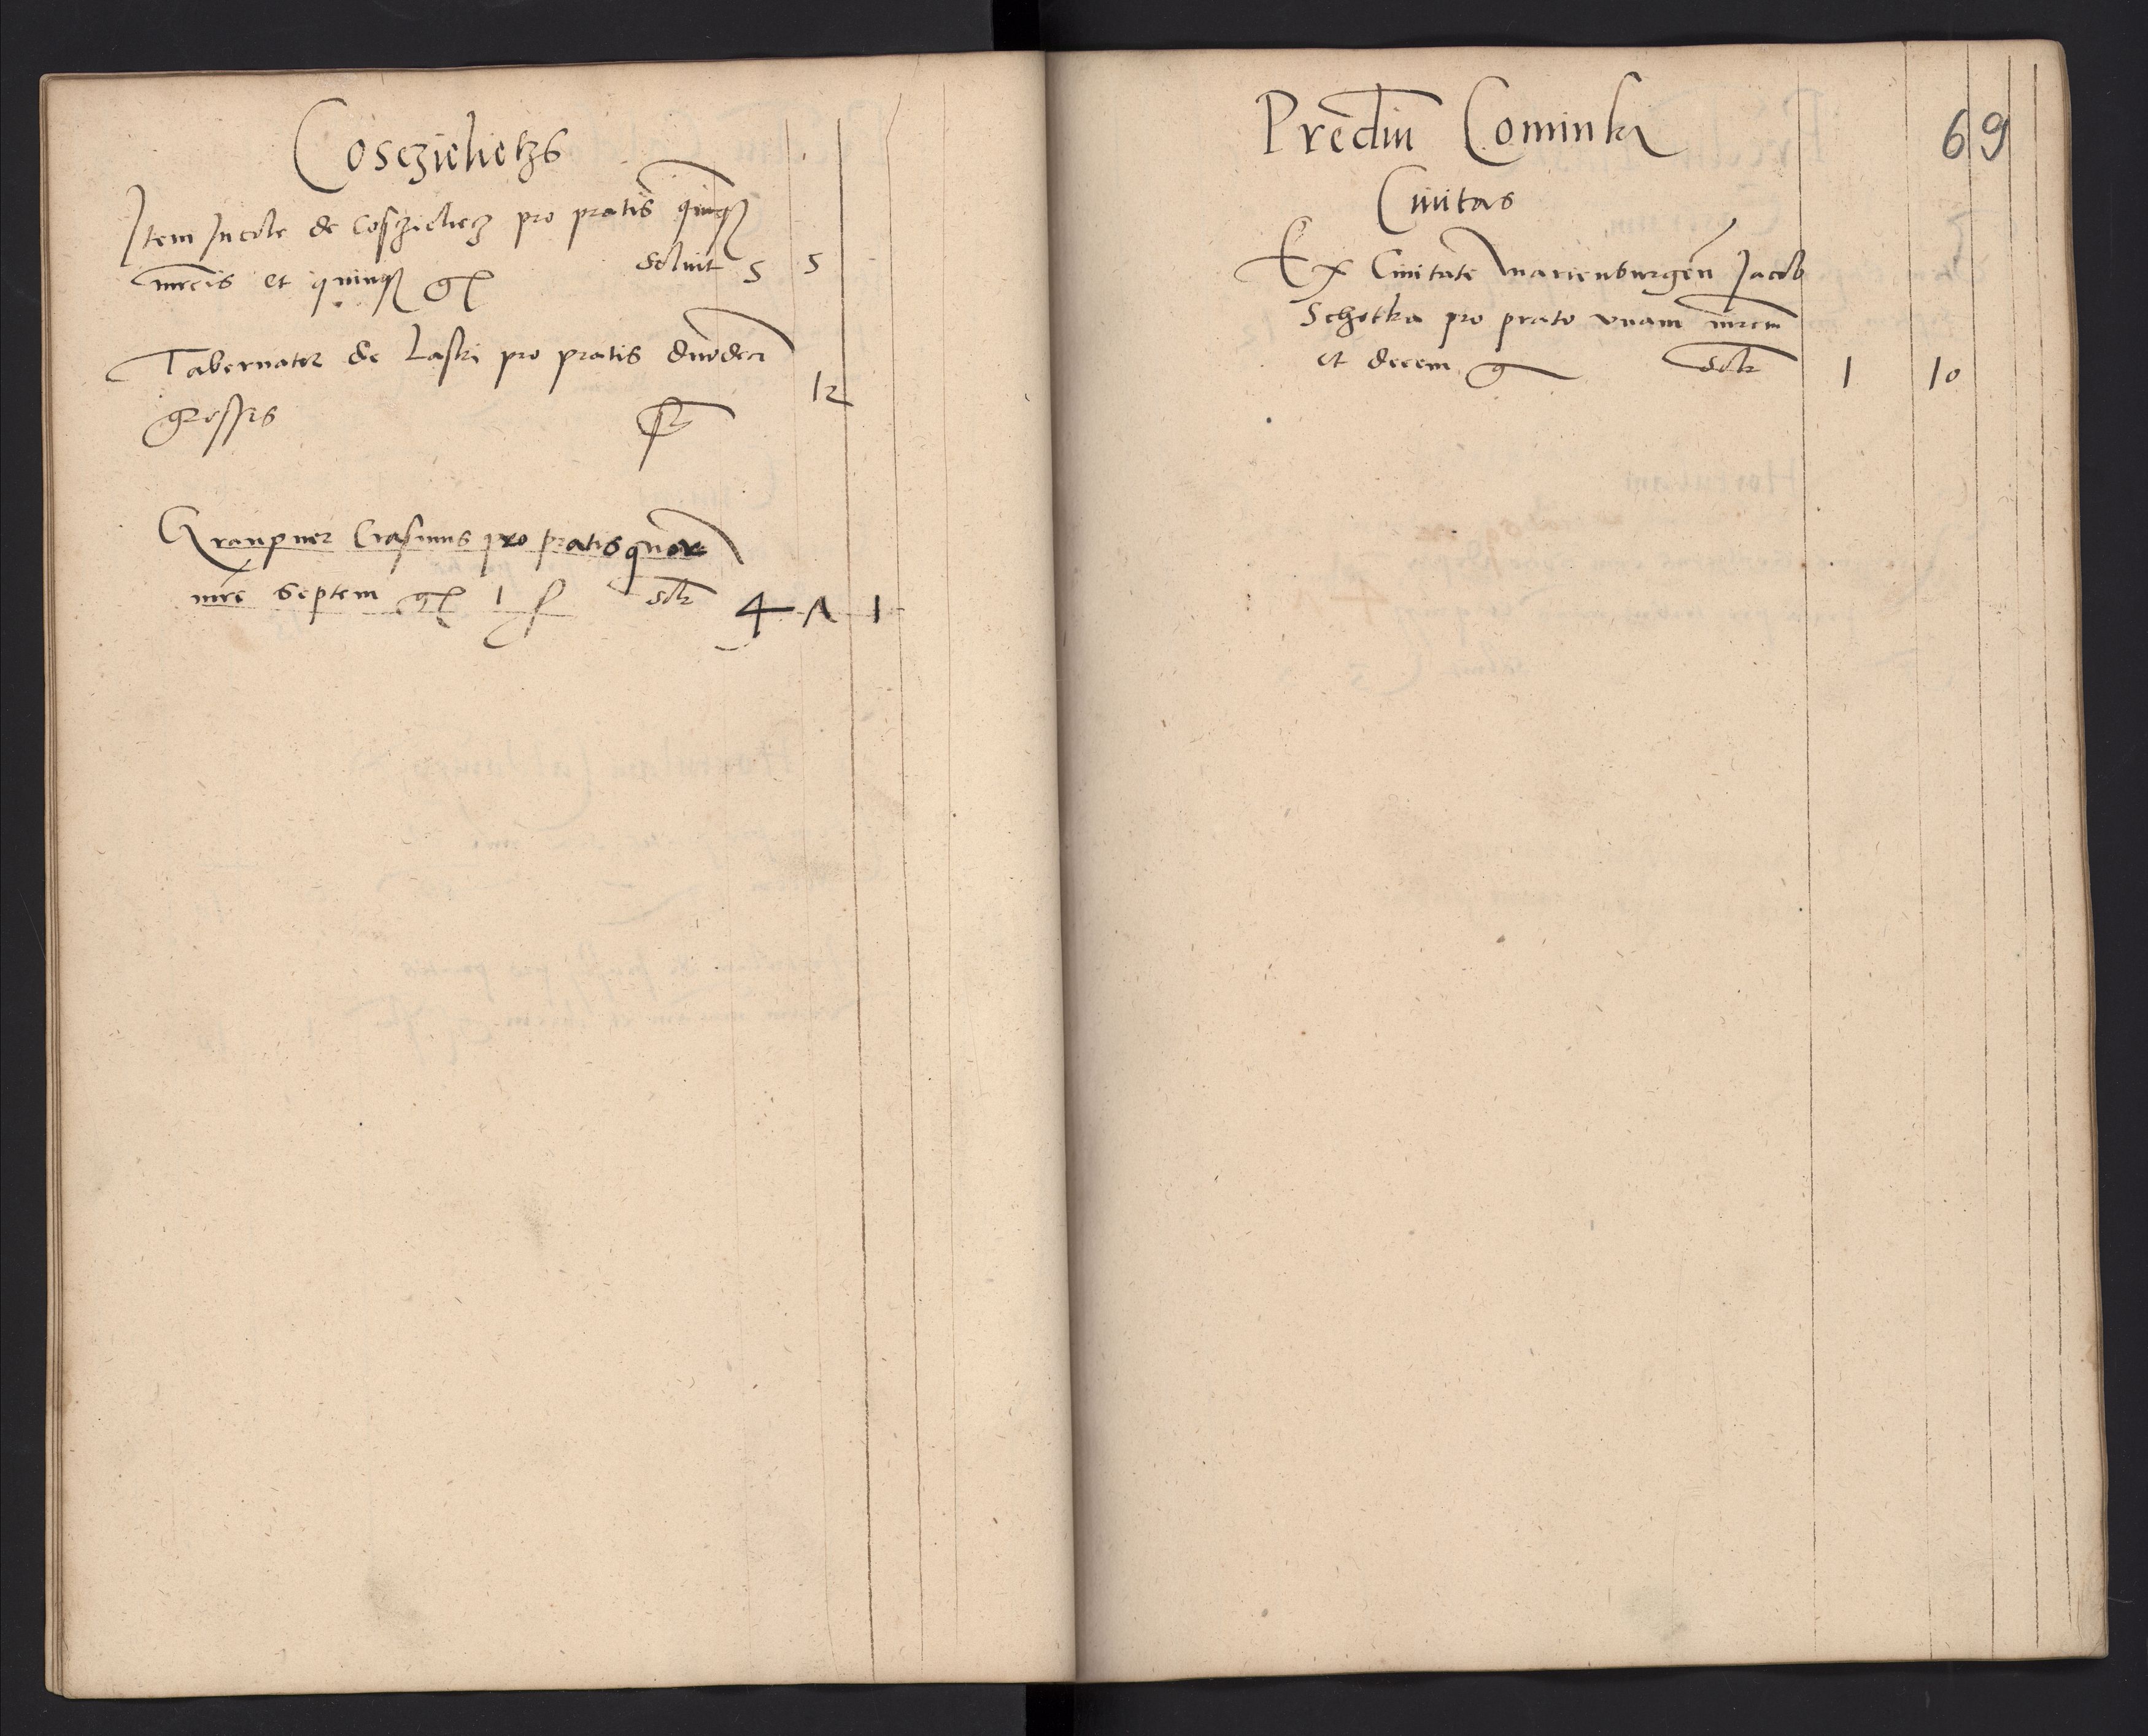 Cosczielietzs
Item Incole de Cosczieliecz pro pratis quinq
mrcis et quinq gr soluit 5 5
Tabernator de Laski pro pratis duodeci
grossis 12
Craupner Erasmus pro pratis quatr
mrc septem gr 1 s solt 4 Λ 1
Prediu Cominki
69
Ciuitas
Ex Ciuitate Marienburgen Jacob
Schotka pro prato vnam mrcm
et decem g solt 1 10